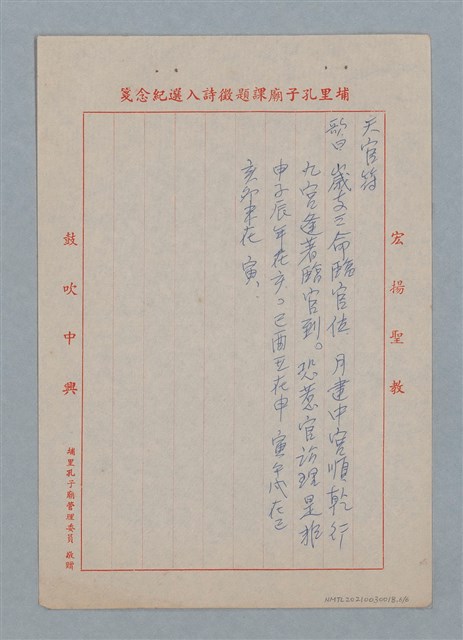 埔里孔子廟課題徵詩入選紀念箋
宏揚聖教
天官符
歌曰 歲支三命臨官位 月建中宮順乾行
九宮逢著臨官到。恐惹官訟理是非
申子辰年在亥。巳酉丑在申 寅午戌在巳
亥卯未在 寅.
鼓吹中興
埔里孔子廟管理委員 敬贈
NMTL20210030018.68